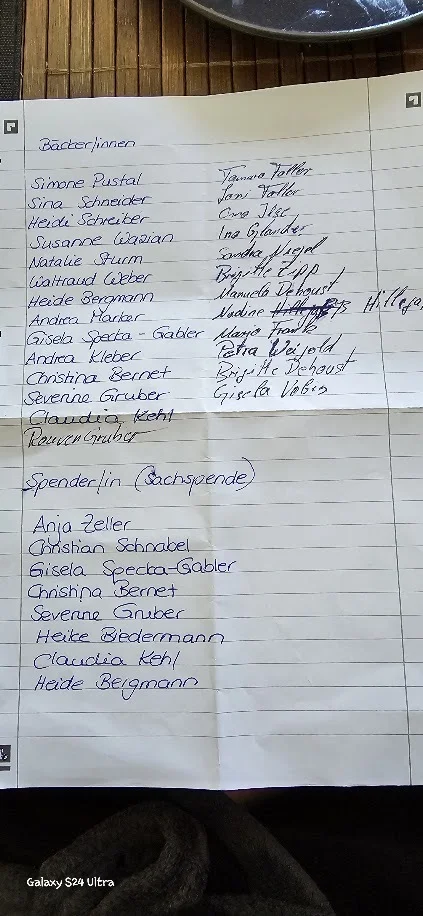 Bäcker/innen
Simone Pustal
Sina Schneider
Heidi Schreiber
Susanne Wazian
Natalie Sturm
Waltraud Weber
Heide Bergmann
Andrea Markar
Gisela Specka-Gabler
Andrea Kleber
Christina Bernet
Severine Gruber
Claudia Kehl
Rouven Gruber
Tamara Faller
Jani Faller
Oma Ilse
Ina Glander
Sandra
Brigitte Epp
Manuela Dehoust
Nadine
Marjo Frank
Petra Weipold
Brigitte Dehoust
Gisela
Spender/in (Sachspende)
Anja Zeller
Christian Schnabel
Gisela Specka-Gabler
Christina Bernet
Severine Gruber
Heike Biedermann
Claudia Kehl
Heide Bergmann
Galaxy S24 Ultra